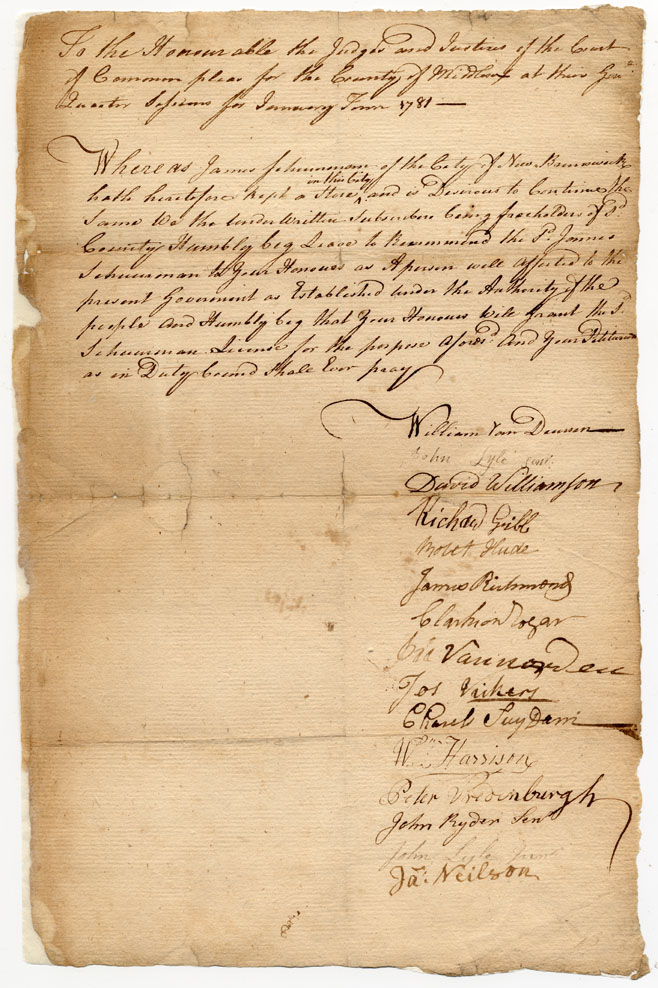 To the Honourable the Judges and Justices of the Court
of Common pleas for the County of Middlesex at their Gen.l
Quarter Sessions for January Term 1781 —
Whereas James Schuurman of the City of New Brunswick
hath heretofore kept a Store in this City and is Desirous to Continue the
Same We the underwritten Subscribers being freeholders of Sd
County Humbly beg Leave to Recommend the Sd James
Schuurman to Your Honours as A person well affected to the
present Goverment as Established under the Authority of the
people And Humbly beg that Your Honours Will Grant the Sd
Schuurman License for the purpose aforesd And Your Petitioners
as in Duty bound Shall Ever pray
William Van Deursen
John Lyle Senr
David Williamson
Richard Gibb
Hude
James Richmond
Clarkson
Vannorden
Jos Vickers
Charels SuyDam
Wm Harrison
Peter Vredenburgh
John Ryder Senr
John Lyle Junr
Jas. Neilson